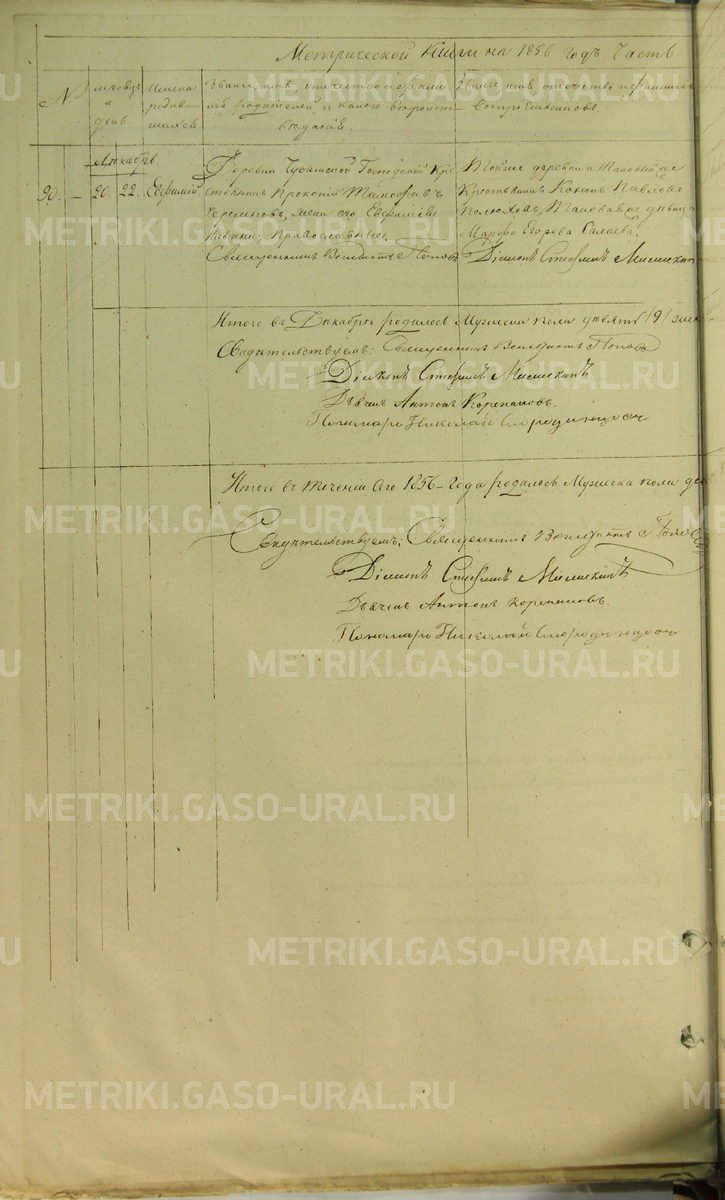 Метрической книги на 1856 годъ часть
№
мѣсяцъ и день
Имена родив-шихся
Званіе, имя, отчество и
ихъ родителей, и какого вѣроиспо-
вѣданія
Званіе имя отечество и
воспріемниковъ.
Декабрь.
90. — 20. 22. Евфимій
Деревни Чувашской Господскій Кре-
стьянинъ Прокопій Тимофѣевъ
жена его Евфимія
православные.
Священникъ Венедиктъ Поповъ
Тойже деревни и таковый же
Крестьянинъ Павловъ
таковаже дѣвица
Марфа Егорова
Діаконъ Стефанъ
Итого въ Декабрѣ родилось Мужеска пола девять /9/
Свидѣтельствуемъ: Священникъ Венедиктъ Поповъ
Діаконъ Стефанъ
Дьячекъ Антонъ Корепановъ.
Пономарь Николай
Итого въ теченіи сего 1856 Года родилось Мужеска пола
Свидѣтельствуемъ: Священникъ Венедиктъ Поповъ
Діаконъ Стефанъ
Дьячекъ Антонъ Корепановъ.
Пономарь Николай
METRIKI.GASO-URAL.RU